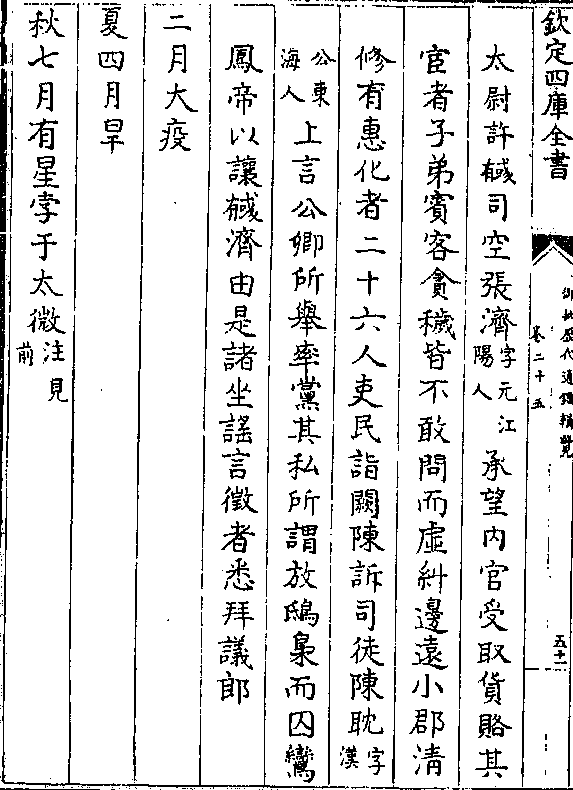 欽定四庫全書
御批歷代通鑑輯覽
卷二十五
五十一
太尉許馘司空張濟字元江陽人承望内官受取貨賂其
宦者子弟賓客貪穢皆不敢問而虛糾邊遠小郡清
修有惠化者二十六人吏民詣闕陳訴司徒陳耽字漢
公東海人上言公卿所舉率黨其私所謂放鴟梟而囚鸞
鳳帝以讓馘濟由是諸坐謡言徵者悉拜議郎
二月大疫
夏四月旱
秋七月有星孛于太微注見前